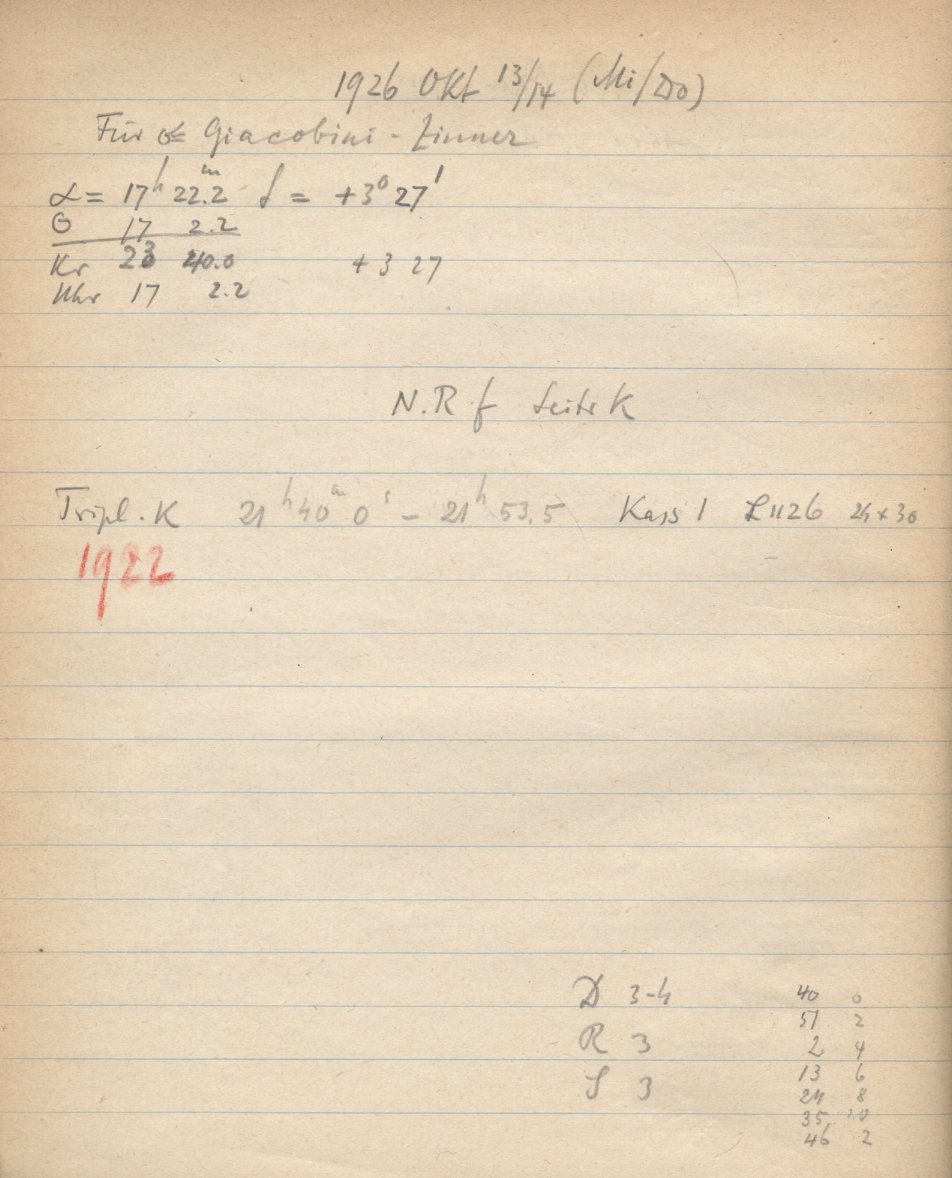 1926 Okt 13/14 (Mi/Do)
Für ☄ Giacobini-Zinner
α = 17h 22.2m δ = +3° 27'
Θ 17 2.2
Kr 23 40.0 +3 27
Uhr 17 2.2
N.R f Seite K
Tripl. K 21h 40m 0s - 21h 53.5 Kass 1 L1126 24x30
1922
D 3-4 40 0
51 2
R 3 2 4
13 6
S 3 24 8
35 10
46 2